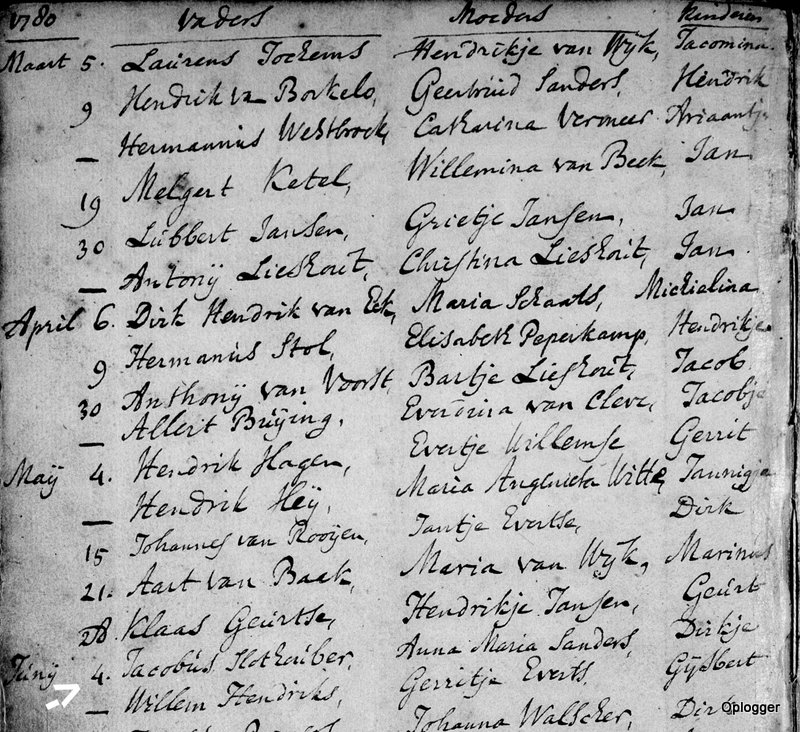 1780 Vaders Moeders Kinderen
Maart 5. Laurens Jochems Hendrikje van Wijk, Jacomina.
9 Hendrik van Borkelo, Geertruid Sanders, Hendrik
— Hermannus Westbroek, Catharina Vermeer Ariaantje
19 Melgert Ketel, Willemina van Beek, Jan
30 Lubbert Jansen, Grietje Jansen, Jan
— Antonij Lieshout, Christina Lieshout, Jan
April 6. Dirk Hendrik van Eck, Maria Schaats, Michielina
9 Hermanus Stol, Elisabeth Peperkamp, Hendrikje
30 Anthonij van Voorst, Bartje Lieshout, Jacob
— Allert Bruijing, Everdina van Cleve, Jacobje
Maij 4. Hendrik Hagen, Evertje Willemse Gerrit
— Hendrik Heij, Maria Witte, Jannigje
15 Johannes van Rooijen, Jantje Evertse, Dirk
21. Aart van Baak, Maria van Wijk, Marinus
28 Klaas Geurtse, Hendrikje Jansen, Geurt
Junij 4. Jacobus Slothouber, Anna Maria Sanders, Dirkje
— Willem Hendriks, Gerritje Everts, Gijsbert
Johanna Walscher, Dirk
Oplogger